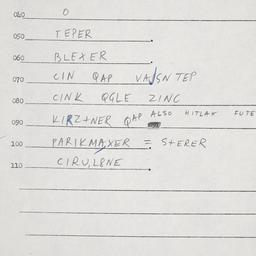 040 O
050 TEPER
060 BLEXER
070 CIN QAP VAJSN TEP
080 CINK QGLE ZINC
090 KIRZTNER QAP ALSO HITLAR FUTE
100 PARIKMAXER = STERER
110 CIRULPNE